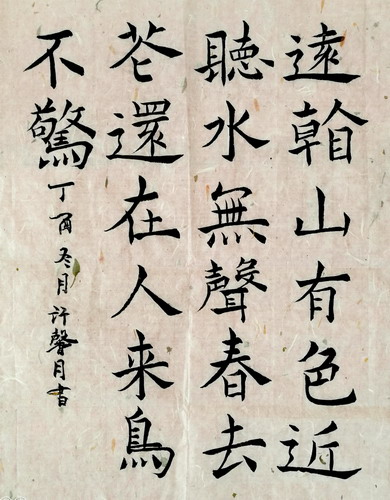 遠看山有色近
聽水無聲春去
花還在人来鳥
不驚
丁酉冬月许馨月書